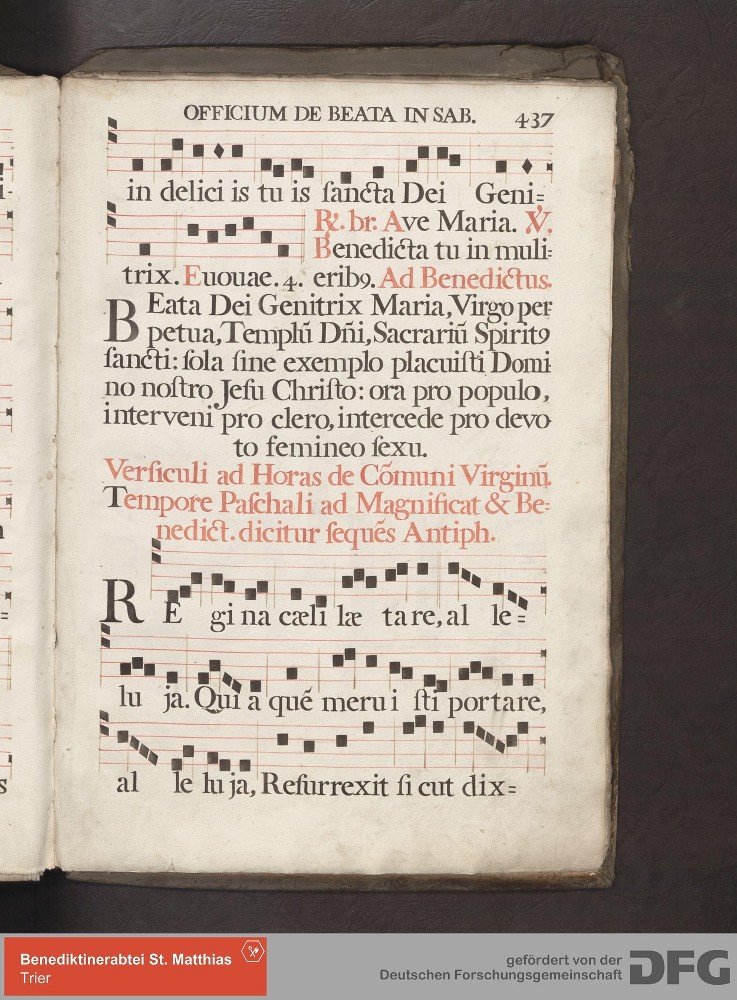 OFFICIUM DE BEATA IN SAB. 437
in delici is tu is ſancta Dei Geni=
R̸. br. Ave Maria. V̸.
Benedicta tu in muli=
trix. Euouae. 4. erib9. Ad Benedictus.
BEata Dei Genitrix Maria, Virgo per
petua, Templū Dn̄i, Sacrariū Spirit9
ſancti: ſola ſine exemplo placuiſti Domi
no noſtro Jeſu Chriſto: ora pro populo,
interveni pro clero, intercede pro devo
to femineo ſexu.
Verſiculi ad Horas de Cōmuni Virginū.
Tempore Paſchali ad Magnificat & Be=
nedict. dicitur ſequēs Antiph.
RE gi na cæli læ ta re, al le=
lu ja. Qui a quē meru i ſti portare,
al le lu ja, Reſurrexit ſi cut dix=
Benediktinerabtei St. Matthias
Trier
gefördert von der
Deutschen Forschungsgemeinschaft
DFG